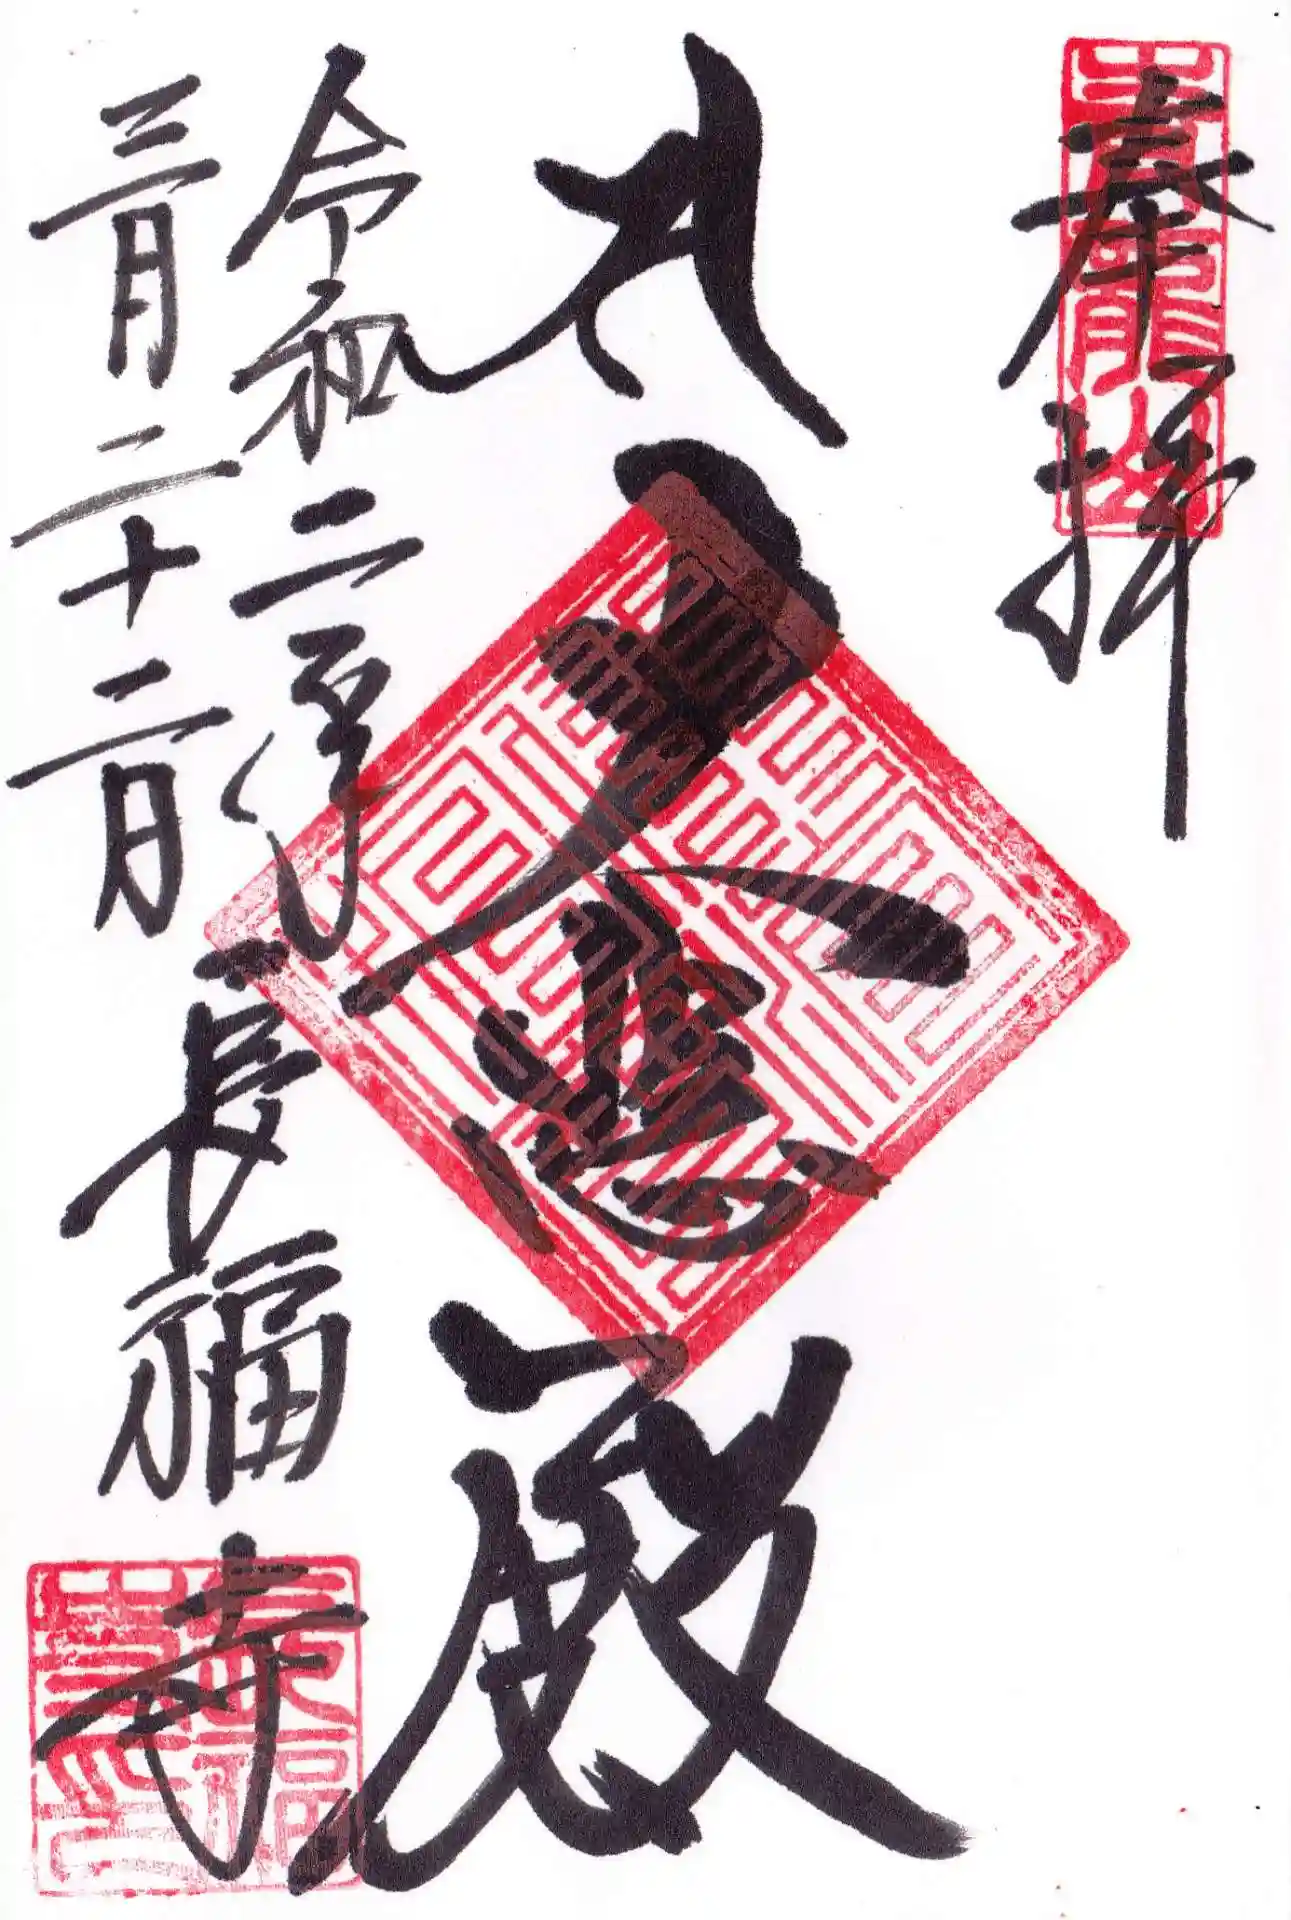 奉拝
大悲殿
令和二年
三月二十二日
長福寺
長福寺印